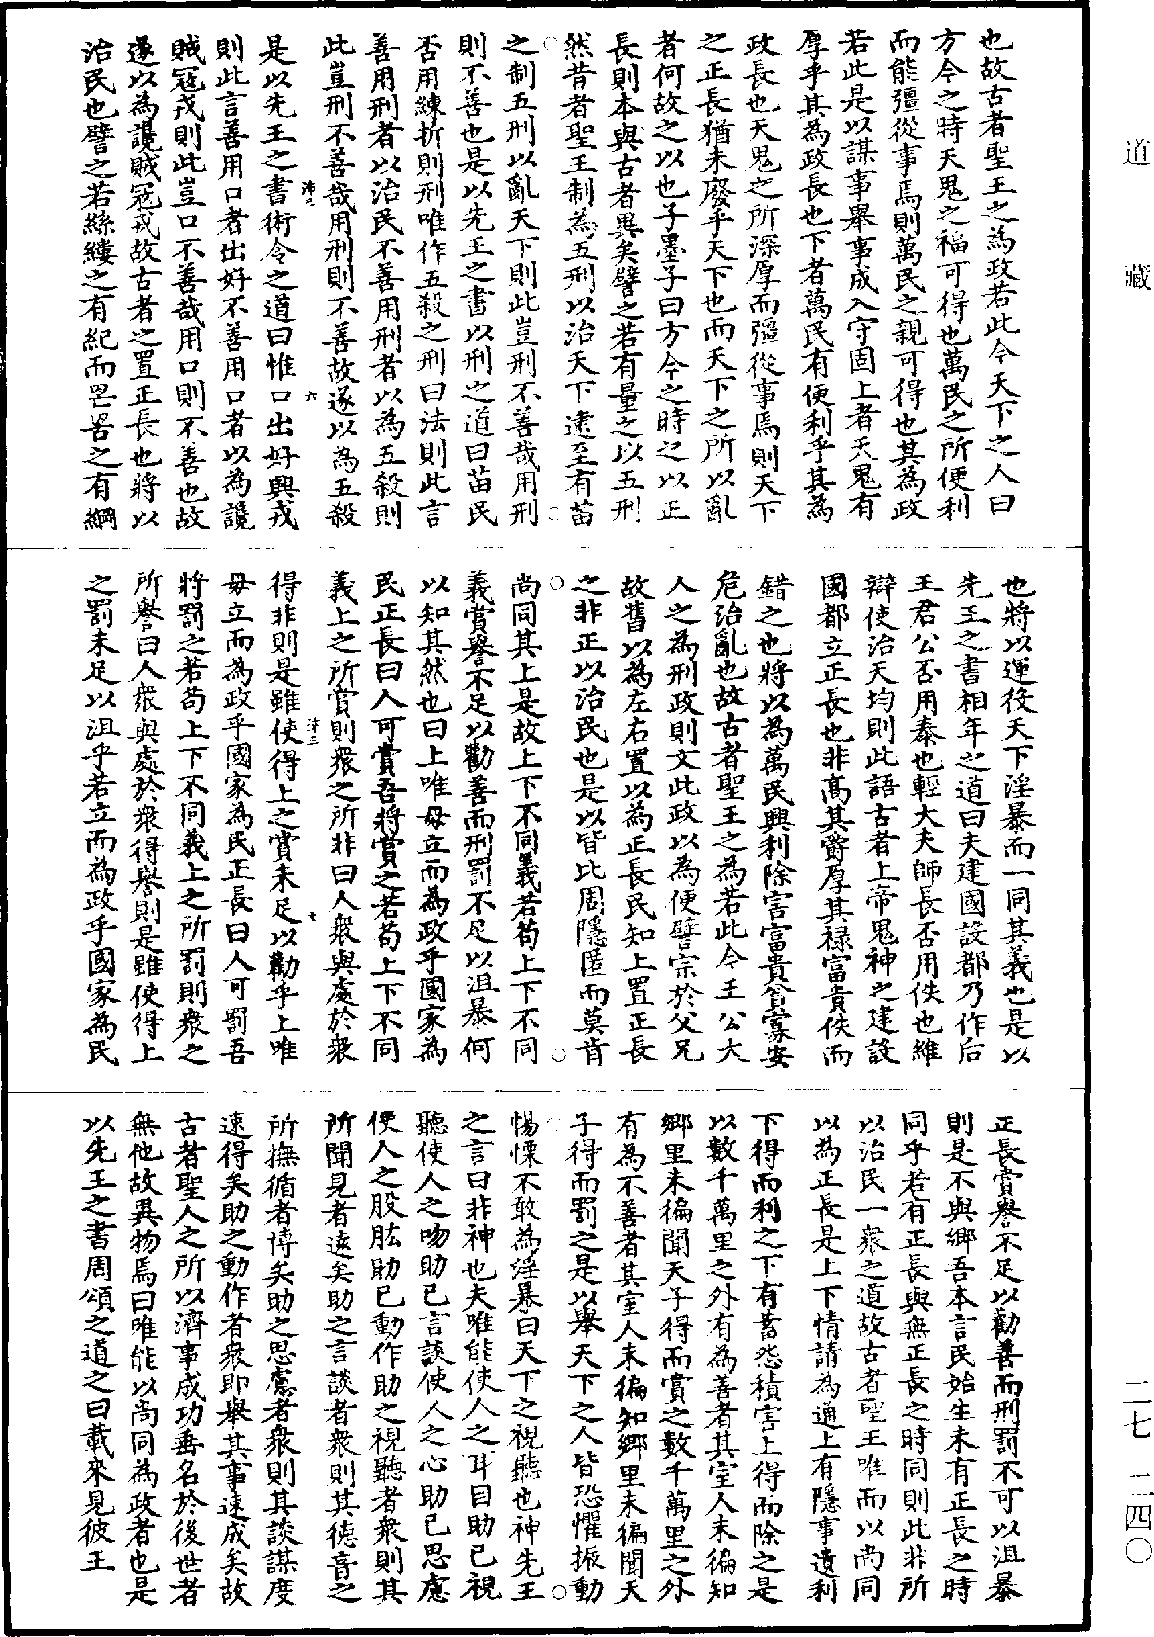 也故古者聖王之為政若此今天下之人曰
方今之時天鬼之福可得也萬民之所便利
而能彊從事焉則萬民之親可得也其為政
若此是以謀事舉事成入守固上者天鬼有
厚乎其為政長也下者萬民有便利乎其為
政長也天鬼之所深厚而彊從事焉則天下
之正長猶未廢乎天下也而天下之所以亂
者何故之以也子墨子曰方今之時之以正
長則本與古者異矣譬之若有量之以五刑
然昔者聖王制為五刑以治天下逮至有苗
之制五刑以亂天下則此豈刑不善哉用刑
則不善也是以先王之書以刑之道曰苗民
否用練折則刑唯作五殺之刑曰法則此言
善用刑者以治民不善用刑者以為五殺則
此豈刑不善哉用刑則不善故遂以為五殺
沛二 六
是以先王之書術令之道曰惟口出好興戎
則此言善用口者出好不善用口者以為讒
賊寇戎則此豈口不善哉用口則不善也故
遂以為讒賊寇戎故古者之置正長也將以
治民也譬之若絲縷之有紀而罔罟之有綱
也將以運役天下淫暴而一同其義也是以
先王之書相年之道曰夫建國設都乃作后
王君公否用泰也輕大夫師長否用佚也維
辯使治天均則此語古者上帝鬼神之建設
國都立正長也非髙其爵厚其祿富貴佚而
錯之也將以為萬民興利除害富貴貧寡安
危治亂也故古者聖王之為若此今王公大
人之為刑政則文此政以為便譬宗於父兄
故舊以為左右置以為正長民知上置正長
之非正以治民也是以皆比周隱匿而莫肯
尚同其上是故上下不同義若苟上下不同
義賞譽不足以勸善而刑罰不足以沮暴何
以知其然也曰上唯毋立而為政乎國家為
民正長曰人可賞吾將賞之若苟上下不同
義上之所賞則衆之所非曰人衆與處於衆
沛三 七
得非則是雖使得上之賞未足以勸乎上唯
毋立而為政乎國家為民正長曰人可罰吾
將罰之若苟上下不同義上之所罰則衆之
所譽曰人衆與處於衆得譽則是雖使得上
之罰未足以沮乎若立而為政乎國家為民
正長賞譽不足以勸善而刑罰不可以沮暴
則是不與鄉吾本言民始生未有正長之時
同乎若有正長與無正長之時同則此非所
以治民一衆之道故古者聖王唯而以尚同
以為正長是上下情請為通上有隱事遺利
下得而利之下有蓄怨積害上得而除之是
以數千萬里之外有為善者其室人未徧知
鄉里未徧聞天子得而賞之數千萬里之外
有為不善者其室人未徧知鄉里未徧聞天
子得而罰之是以舉天下之人皆恐懼振動
惕慄不敢為淫暴曰天下之視聽也神先王
之言曰非神也夫唯能使人之耳目助已視
聽使人之吻助已言談使人之心助已思慮
使人之股肱助已動作助之視聽者衆則其
所聞見者遠矣助之言談者衆則其德音之
所撫循者博矣助之思慮者衆則其談謀度
速得矣助之動作者衆即舉其事速成矣故
古者聖人之所以濟事成功垂名於後世者
無他故異物焉曰唯能以尚同為政者也是
以先王之書周頌之道之曰載來見彼王
道藏
二七 二四〇